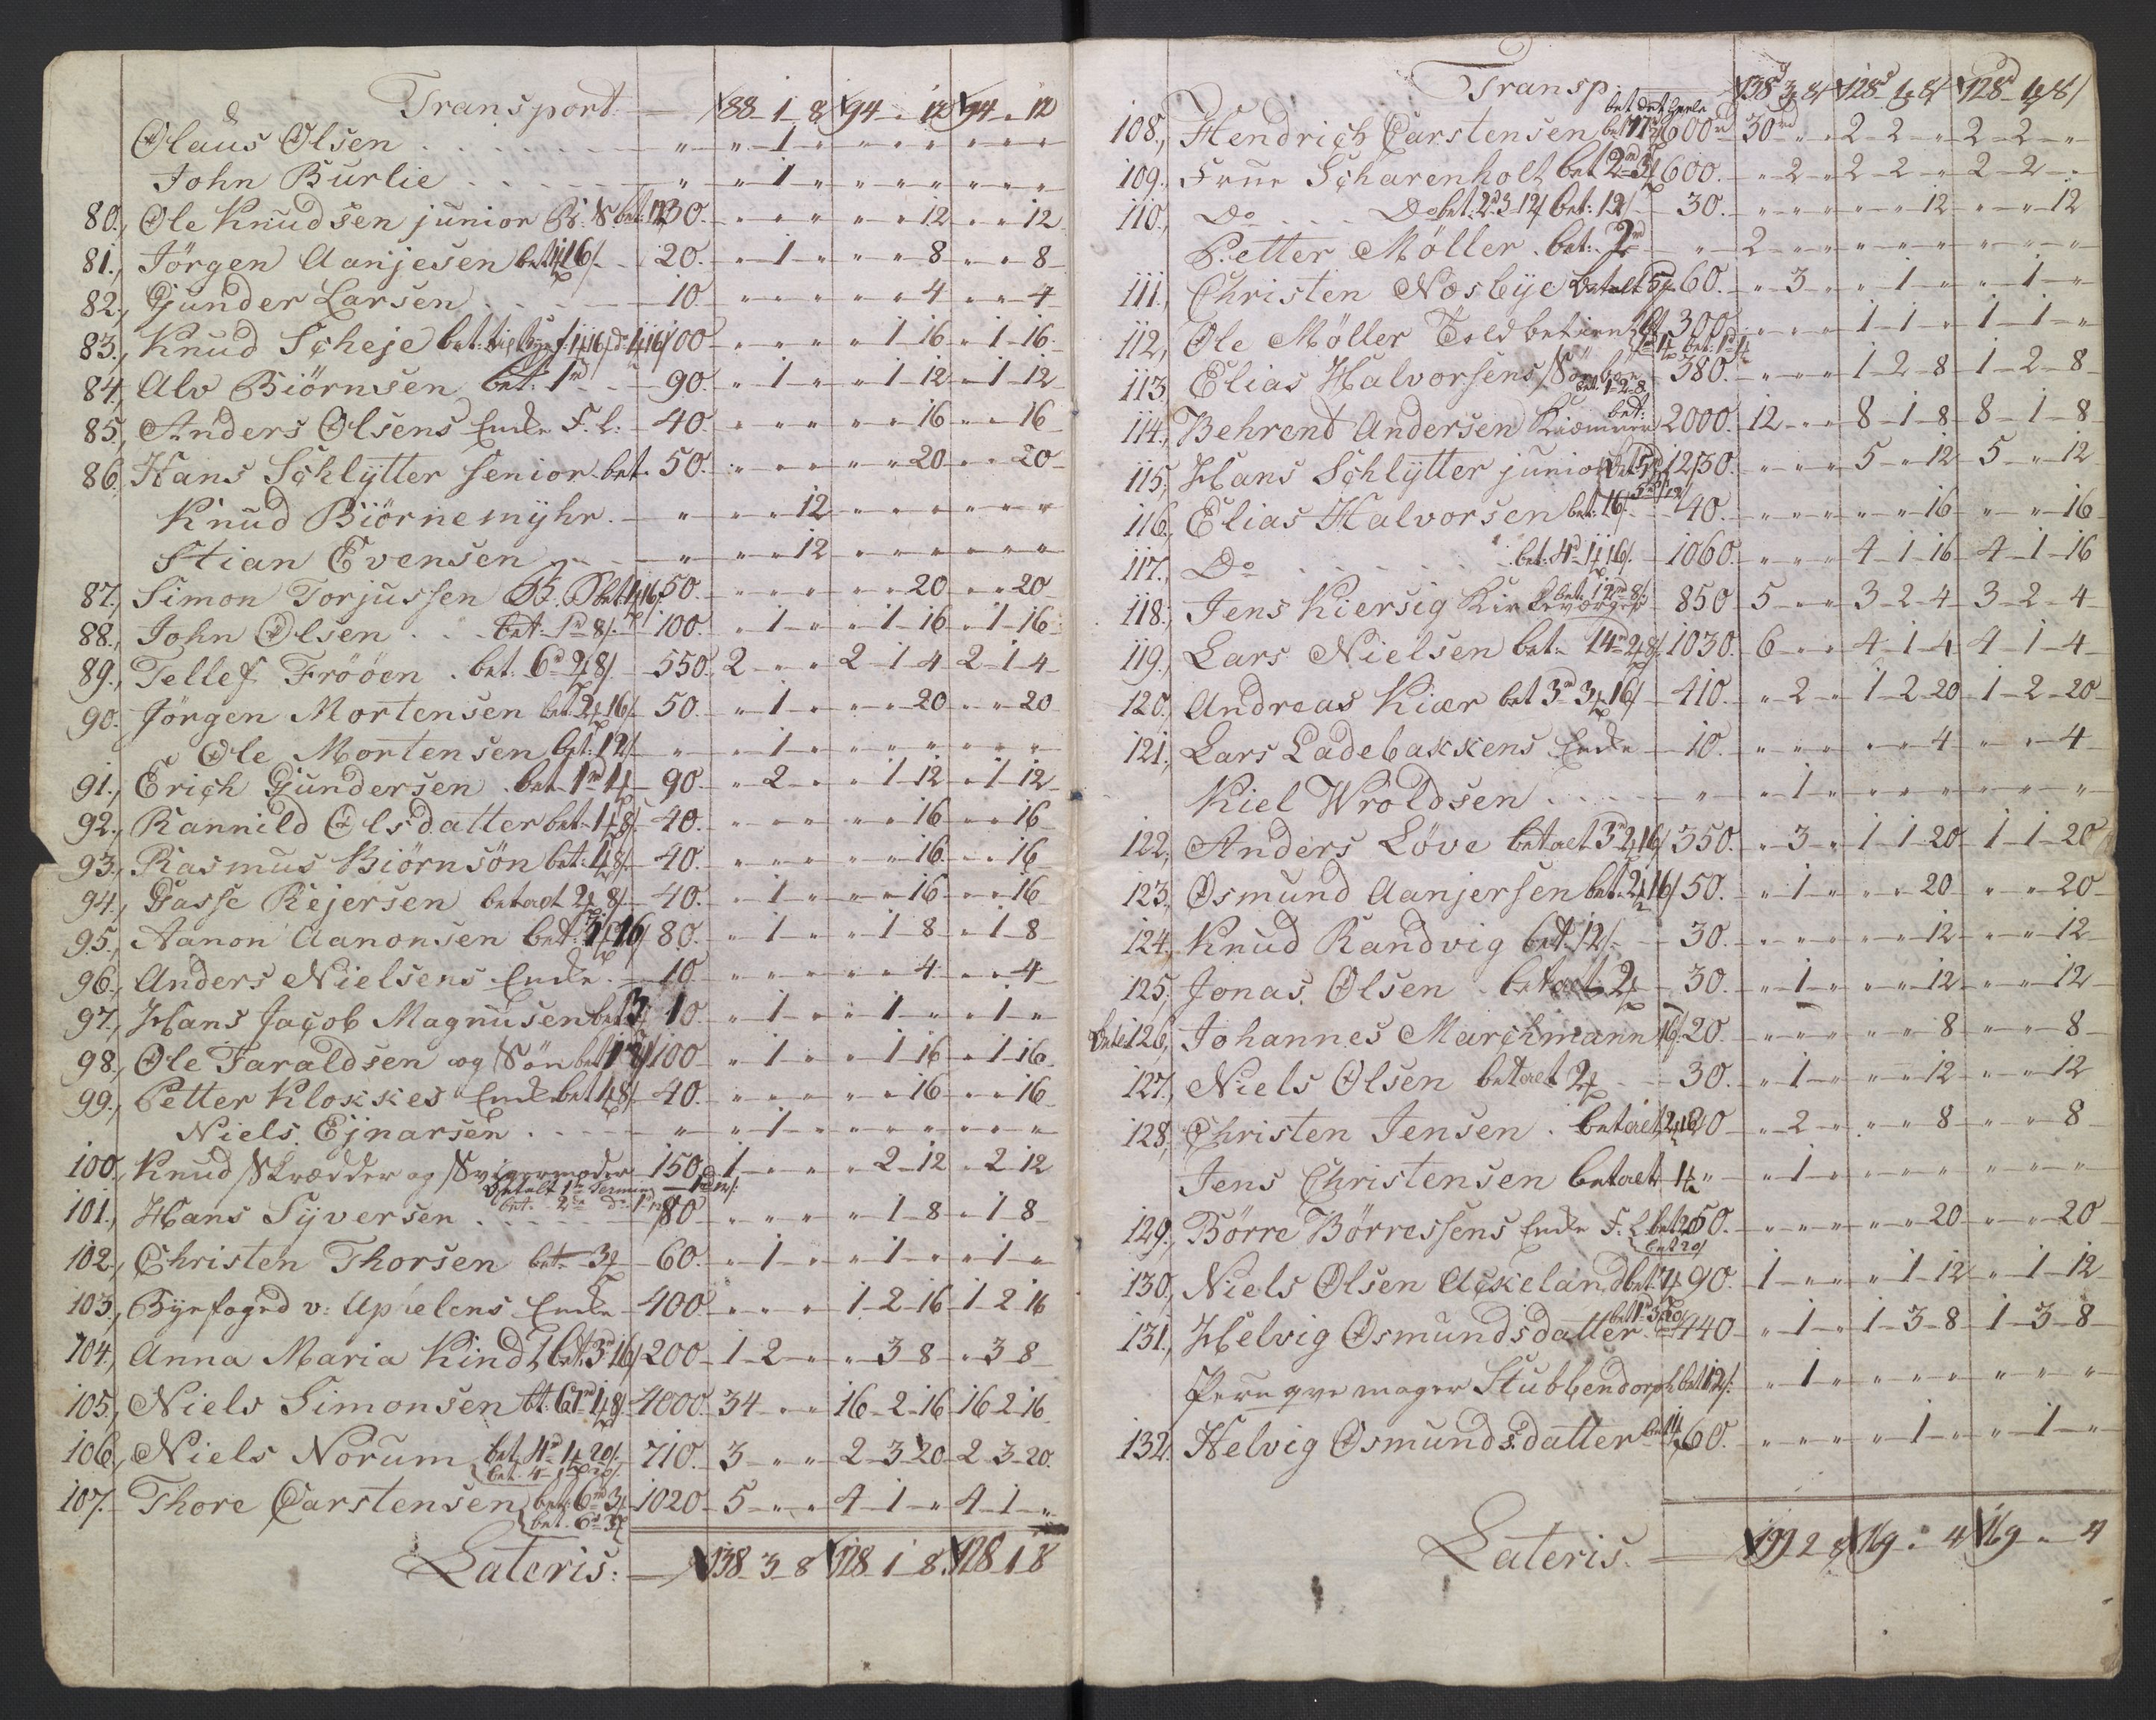 Transport. — 88 - 1 - 8 94 - " - 12 94 - " - 12
Olaus Olsen . . . . . — " " - 1 - " " - " - " " - " - "
John Burlie . . . . . — " " - 1 - " " - " - " " - " - "
80., Ole Knudsen junior B: S. bet: 12 30. " - " - " " - " - 12 " - " - 12
81., Jörgen Aanjesen bet 1 16/. 20. " - 1 - " " - " - 8 " - " - 8
82., Gunder Larsen . . . 10. " - " - " " - " - 4 " - " - 4
83., Knud Scheje bet: 100 " - " - " " - 1 - 16 " - 1 - 16
84., Alv Biörnsen bet: 1rd 90. " - 1 - " " - 1 - 12 " - 1 - 12
85., Anders Olsens Enke F. L: 40. " - " - " " - " - 16 " - " - 16
86., Hans Schlytter senior bet. 50. " - " - " " - " - 20 " - " - 20
Knud Biörnemyhr. — " " - " - 12 " - " - " " - " - "
Stian Evensen — " " - " - 12 " - " - " " - " - "
87., Simon Torjussen 50. " - " - " " - " - 20 " - " - 20
88., John Olsen . . bet: 1rd 8/. 100. " - 1 - " " - 1 - 16 " - 1 - 16
89., Tellef Fröóen . bet: 6d 2 8/ 550. 2 - " - " 2 - 1 - 4 2 - 1 - 4
90. Jörgen Mortensen bet 2 16/ 50. " - 1 - " " - " - 20 " - " - 20
Ole Mortensen bet: 12/ " " - 1 - " " - " - " " - " - "
91., Erich Gundersen bet 1rd 1 90. " - 2 - " " - 1 - 12 " - 1 - 12
92., Rannild Olsdatter bet: 1 8/ 40. " - " - " " - " - 16 " - " - 16
93., Rasmus Biörnsön bet: 1 8/ 40. " - " - " " - " - 16 " - " - 16
94., Gasse Rejersen betaet 2 8/ 40. " - 1 - " " - " - 16 " - " - 16
95., Aanon Aanonsen bet: 3 16/ 80. " - 1 - " " - 1 - 8 " - 1 - 8
96., Anders Nielsens Enke. 10. " - " - " " - " - 4 " - " - 4
97., Hans Jacob Magnusen bet 3 10 " - 1 - " " - 1 - " " - 1 - "
98., Ole Taraldsen og Sön bet 100 " - 1 - " " - 1 - 16 " - 1 - 16
99., Petter Klokkes Enke bet 1 8/ 40. " - " - " " - " - 16 " - " - 16
Niels Ejnarsen . . . " " - 1 - " " - " - " " - " - "
100., Knud Skrædder og Svigermoder 150. 1 - " - " " - 2 - 12 " - 2 - 12
betalt 1te Termin 1rd 12/:
bet. 2de do 1rd
101., Hans Syversen . . . . 80 " - " - " " - 1 - 8 " - 1 - 8
102., Christen Thorsen bet 3 60. " - 1 - " " - 1 - " " - 1 - "
103., Byefoged v: Uphelens Enke 400 " - " - " 1 - 2 - 16 1 - 2 - 16
104., Anna Maria Kind bet. 3rd 16/ 200 1 - 2 - " " - 3 - 8 " - 3 - 8
105., Niels Simonsen bt: 67rd 1 8/ 4000. 34 - " - " 16 - 2 - 16 16 - 2 - 16
106., Niels Norum bet. 4d 1 20/. 710. 3 - " - " 2 - 3 - 20 2 - 3 - 20.
bet. 4 - 1 20/.
107. Thore Carstensen bet: 6rd 3 1020 5 - " - " 4 - 1 - " 4 - 1 - "
bet. 6d 3
Lateris: — 138 - 3 - 8 128 - 1 - 8. 128 - 1 - 8
Transp. 138d 3 8/ 128d 1 8/ 128d 1 8/
bet det heele
108., Hendrich Carstensen 600rd 30rd " - " 2 - 2 - " 2 - 2 - "
109., Frue Scharenholt bet 2rd 3 600. " - 2 - " 2 - 2 - " 2 - 2 - "
110., Do . . Do bet: 2d 3 12/ bet: 12/ 30. " - " - " " - " - 12 " - " - 12
Petter Möller . bet: 2rd " 2 - " - " " - " - " " - " - "
111., Christen Næsbye betalt 5 60. " - 3 - " " - 1 - " " - 1 - "
112., Ole Möller Toldbetient bt 300. " - " - " 1 - 1 - " 1 - 1 - "
1rd 1 bet: 1rd 1
113., Elias Halvorsens 380. " - " - " 1 - 2 - 8 1 - 2 - 8
bet. 1 - 2 - 8
bet:
114., Behrend Andersen Kræmmer 2000. 12 - " - " 8 - 1 - 8 8 - 1 - 8
115., Hans Schlytter junior bet 5rd 12/ 1230. " - " - " 5 - " - 12 5 - " - 12
5rd 12/
116., Elias Halvorsen bet: 16/. 40. " - " - " " - " - 16 " - " - 16
117., Do . . . . . bet: 4d 1 16/. 1060. " - " - " 4 - 1 - 16 4 - 1 - 16
bet: 12rd 8/.
118., Jens Kiersig Kirkeværge 850 5 - " - " 3 - 2 - 4 3 - 2 - 4
119., Lars Nielsen bet: 14rd 2 8/ 1030. 6 - " - " 4 - 1 - 4 4 - 1 - 4
120., Andreas Kiær bet 3rd 3 16/ 410. " - 2 - " 1 - 2 - 20 1 - 2 - 20
121., Lars Ladebakkens Enke 10. " - " - " " - " - 4 " - " - 4
Kiel Wroldsen . . . . " " - 1 - " " - " - " " - " - "
122., Anders Löve betaet 3rd 2 16/ 350. " - 3 - " 1 - 1 - 20 1 - 1 - 20
123., Osmund Aanjersen bet: 2 16/ 50. " - 1 - " " - " - 20 " - " - 20
124., Knud Randvig bet: 12/. 30. " - " - " " - " - 12 " - " - 12
125., Jonas Olsen betaet 2 30. " - 1 - " " - " - 12 " - " - 12
126., Johannes Marchmann 16/. 20. " - " - " " - " - 8 " - " - 8
127., Niels Olsen betaet 2 30. " - 1 - " " - " - 12 " - " - 12
128., Christen Jensen . betaet 2 16/ 20 " - 2 - " " - " - 8 " - " - 8
Jens Christensen betaet 1 " " - 1 - " " - " - " " - " - "
129., Börre Börressens Enke F. L bet 20/ 50. " - " - " " - " - 20 " - " - 20
bet 20/
130., Niels Olsen Ackeland bet: 7 90. 1 - " - " " - 1 - 12 " - 1 - 12
bet 1rd 3 20/
131., Helvig Osmundsdatter 440 " - 1 - " 1 - 3 - 8 1 - 3 - 8
Peruqvemager Stubbendorph bet 12/: " - 1 - " " - " - " " - " - "
132. Helvig Osmundsdatter bet 1 60. " - " - " " - 1 - " " - 1 - "
Lateris. — 199 2 8 169 - " - 4 169 - " - 4